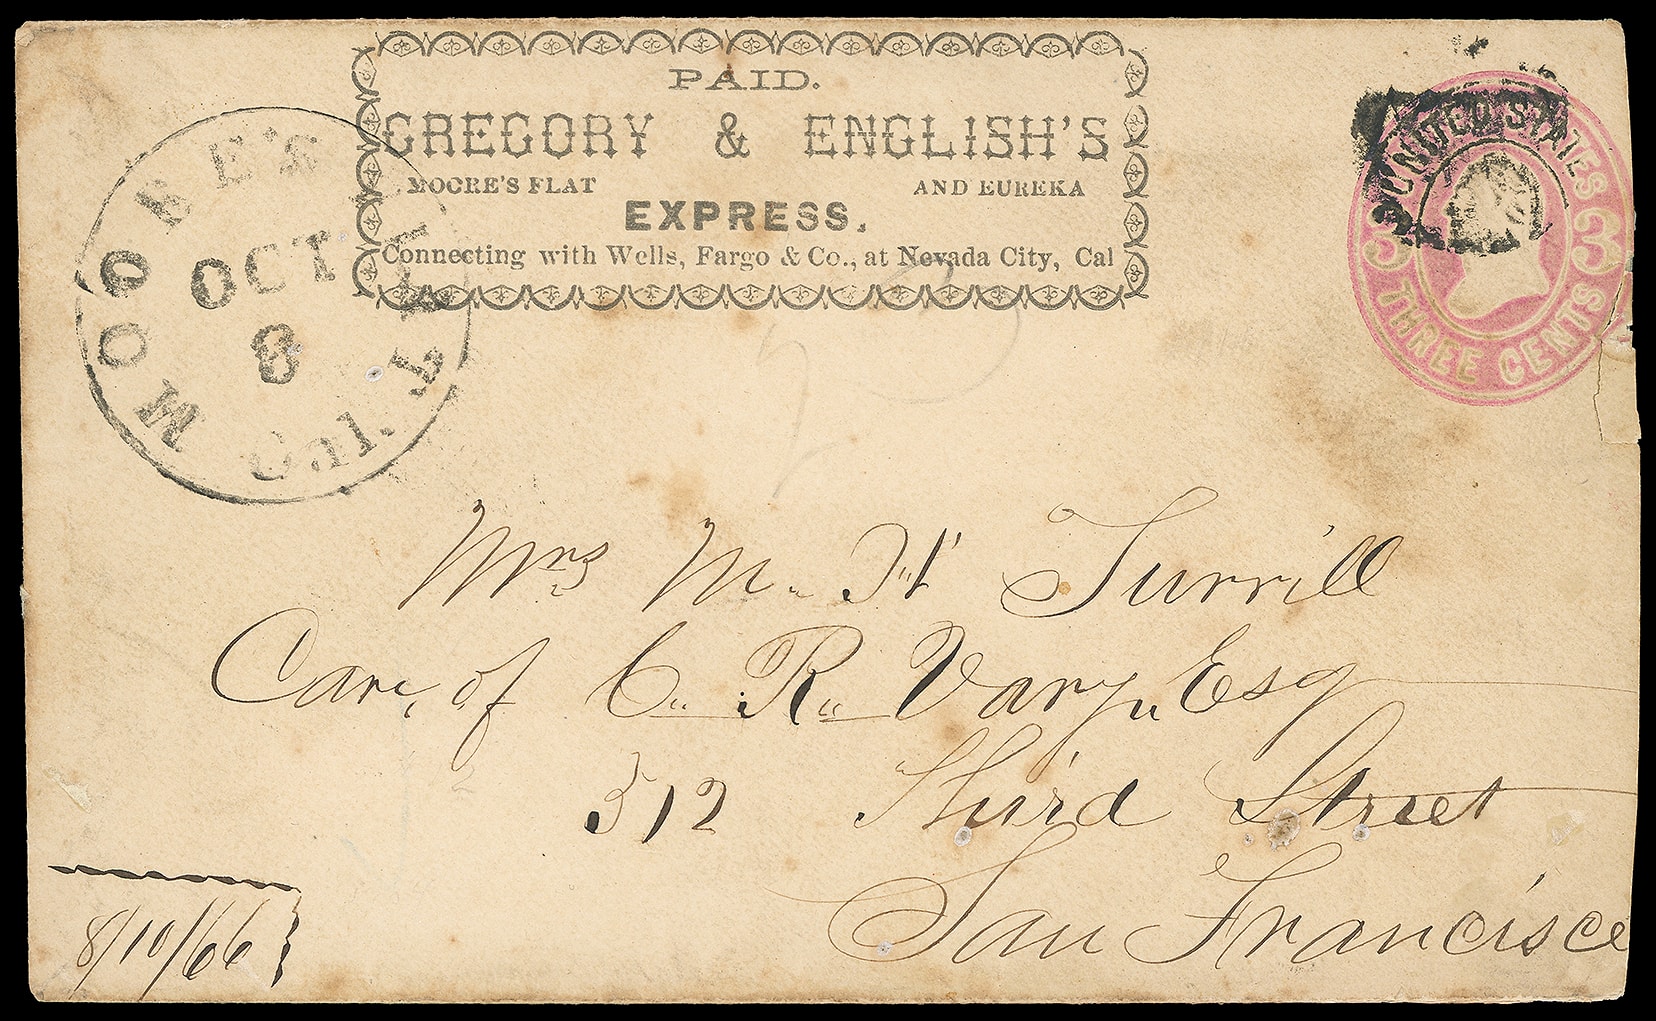 PAID.
GREGORY & ENGLISH'S
MOORE'S FLAT AND EUREKA
EXPRESS,
Connecting with Wells, Fargo & Co., at Nevada City, Cal
MOORE'S FLAT
OCT
8
Cal.
UNITED STATES
3 3
THREE CENTS
Mrs M. H. Turrill
Care, of C. R. Vary, Esq
312 Third Street
San Francisco
8/10/66